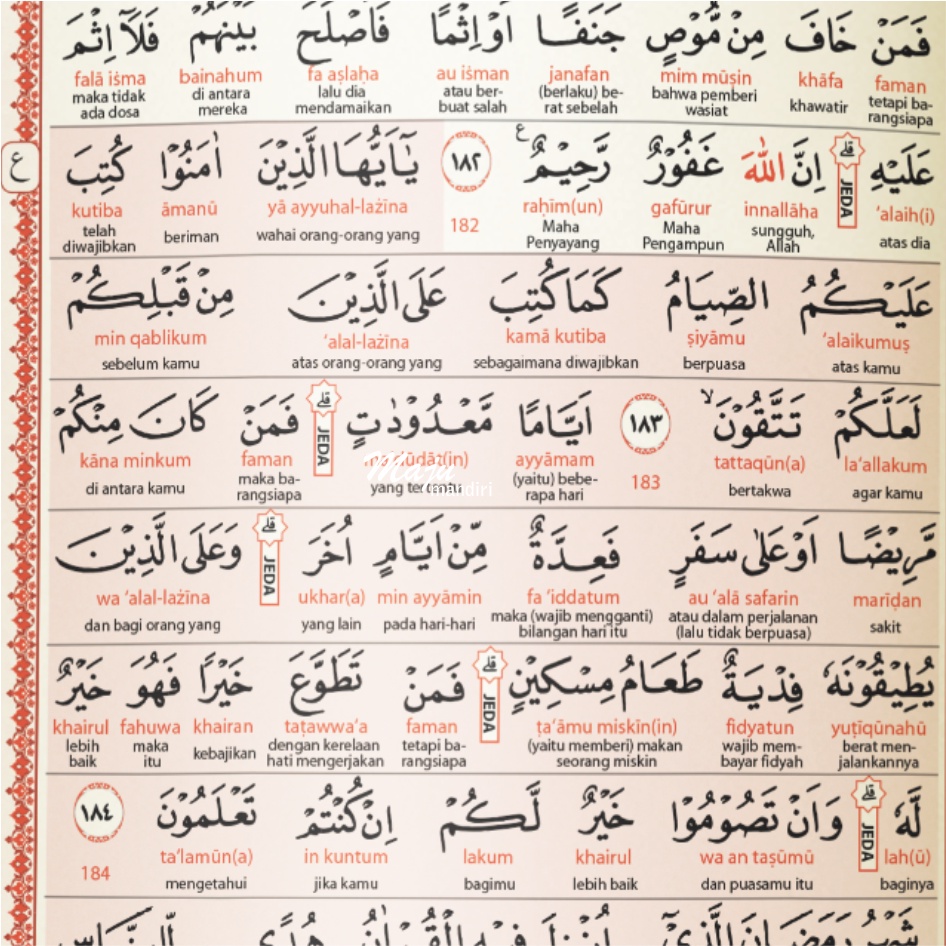 فَمَنْ خَافَ مِنْ مُّوْصٍ جَنَفًا اَوْ اِثْمًا فَاَصْلَحَ بَيْنَهُمْ فَلَآ اِثْمَ
faman khāfa mim mūṣin janafan au iṡman fa aṣlaḥa bainahum falā iṡma
tetapi ba-rangsiapa khawatir bahwa pemberi wasiat (berlaku) be-rat sebelah atau ber-buat salah lalu dia mendamaikan di antara mereka maka tidak ada dosa
عَلَيْهِ ۗ اِنَّ اللّٰهَ غَفُوْرٌ رَّحِيْمٌ ࣖ ١٨٢ يٰٓاَيُّهَا الَّذِيْنَ اٰمَنُوْا كُتِبَ
ع
‘alaih(i) JEDA innallāha gafūrur raḥīm(un) 182 yā ayyuhal-lażīna āmanū kutiba
atas dia sungguh, Allah Maha Pengampun Maha Penyayang wahai orang-orang yang beriman telah diwajibkan
عَلَيْكُمُ الصِّيَامُ كَمَا كُتِبَ عَلَى الَّذِيْنَ مِنْ قَبْلِكُمْ
‘alaikumuṣ ṣiyāmu kamā kutiba ‘alal-lażīna min qablikum
atas kamu berpuasa sebagaimana diwajibkan atas orang-orang yang sebelum kamu
لَعَلَّكُمْ تَتَّقُوْنَۙ ١٨٣ اَيَّامًا مَّعْدُوْدٰتٍۗ فَمَنْ كَانَ مِنْكُمْ
la‘allakum tattaqūn(a) 183 ayyāmam JEDA faman kāna minkum
agar kamu bertakwa (yaitu) bebe-rapa hari yang maka ba-rangsiapa di antara kamu
Maju mandiri
مَّرِيْضًا اَوْ عَلٰى سَفَرٍ فَعِدَّةٌ مِّنْ اَيَّامٍ اُخَرَ ۗ وَعَلَى الَّذِيْنَ
marīḍan au ‘alā safarin fa ‘iddatum min ayyāmin ukhar(a) JEDA wa ‘alal-lażīna
sakit atau dalam perjalanan (lalu tidak berpuasa) maka (wajib mengganti) bilangan hari itu pada hari-hari yang lain dan bagi orang yang
يُطِيْقُوْنَهٗ فِدْيَةٌ طَعَامُ مِسْكِيْنٍۗ فَمَنْ تَطَوَّعَ خَيْرًا فَهُوَ خَيْرٌ
yuṭīqūnahū fidyatun ṭa‘āmu miskīn(in) JEDA faman taṭawwa‘a khairan fahuwa khairul
berat men-jalankannya wajib mem-bayar fidyah (yaitu memberi) makan seorang miskin tetapi ba-rangsiapa dengan kerelaan hati mengerjakan kebajikan maka itu lebih baik
لَّهٗ ۗ وَاَنْ تَصُوْمُوْا خَيْرٌ لَّكُمْ اِنْ كُنْتُمْ تَعْلَمُوْنَ ١٨٤
lah(ū) JEDA wa an taṣūmū khairul lakum in kuntum ta‘lamūn(a) 184
baginya dan puasamu itu lebih baik bagimu jika kamu mengetahui
شَهْرُ رَمَضَانَ الَّذِيْٓ اُنْزِلَ فِيْهِ الْقُرْاٰنُ هُدًى لِّلنَّاسِ